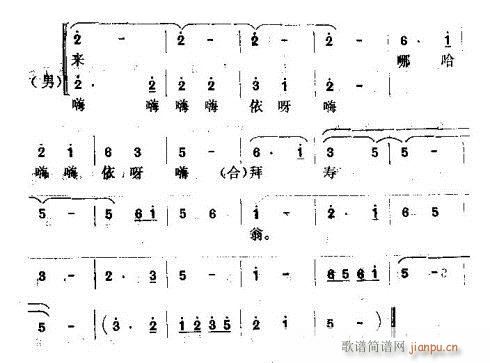 2̇ - | 2̇ - | 2̇ - | 2̇ - | 6 · i̇
来 哪 哈
(男) 2̇ · 2̇ | 2̇ 2̇ | 3̇ i̇ | 2̇ - |
嗨 嗨 嗨 嗨 依 呀 嗨
2̇ i̇ | 6 3 | 5 - | 6 · i̇ | 3 5 | 5 -
嗨 嗨 依 呀 嗨 (合) 拜 寿
5 - | 5 · 6 i̇ | 5 - | i̇ - | 2̇ · i̇ | 6 5
翁。
3 - | 2 · 3 | 5 - | i̇ - | 6 5 6 i̇ | 5 -
5 - | (3̇ · 2̇ | i̇ 2̇ 3̇ 5̇ | 2̇ i̇ | 5 -) ‖
歌谱简谱网
jianpu.cn